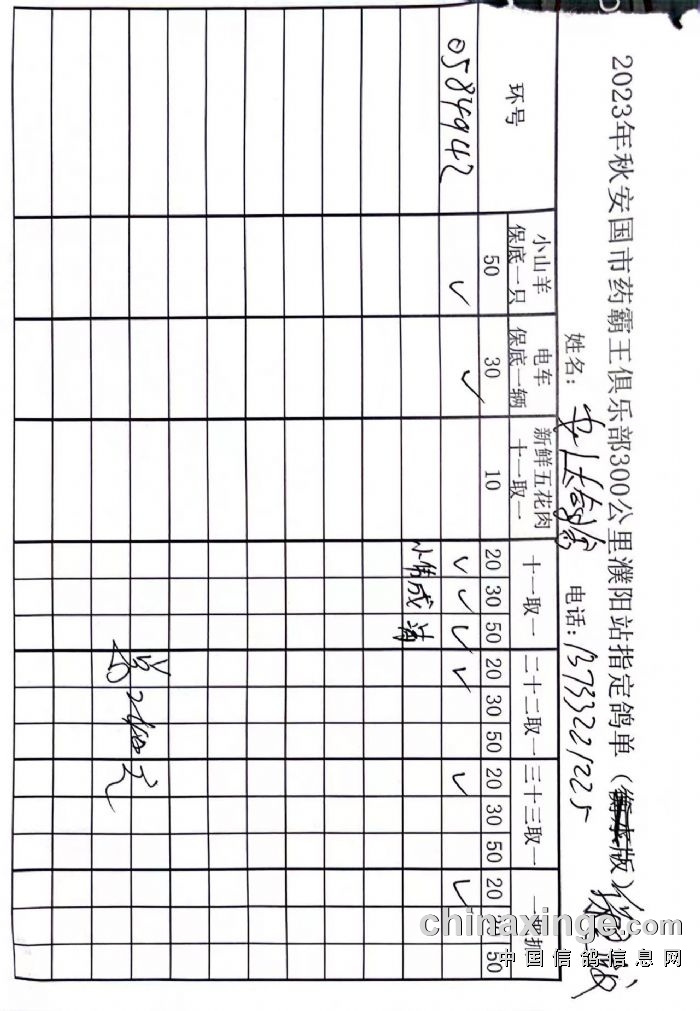 2023年秋安国市药霸王俱乐部300公里濮阳站指定鸽单（衡水版）
姓名：
电话：13733221225
环号
小山羊 保底一只
电车 保底一辆
新鲜五花肉 十一取一
十一取一
二十二取一
三十三取一
一把抓
50 30 10 20 30 50 20 30 50 20 30 50 20 30 50
0584942 ✓ ✓ ✓ ✓ ✓ ✓ ✓ ✓
小伟成请
chinaxinge.com
中国信鸽信息网